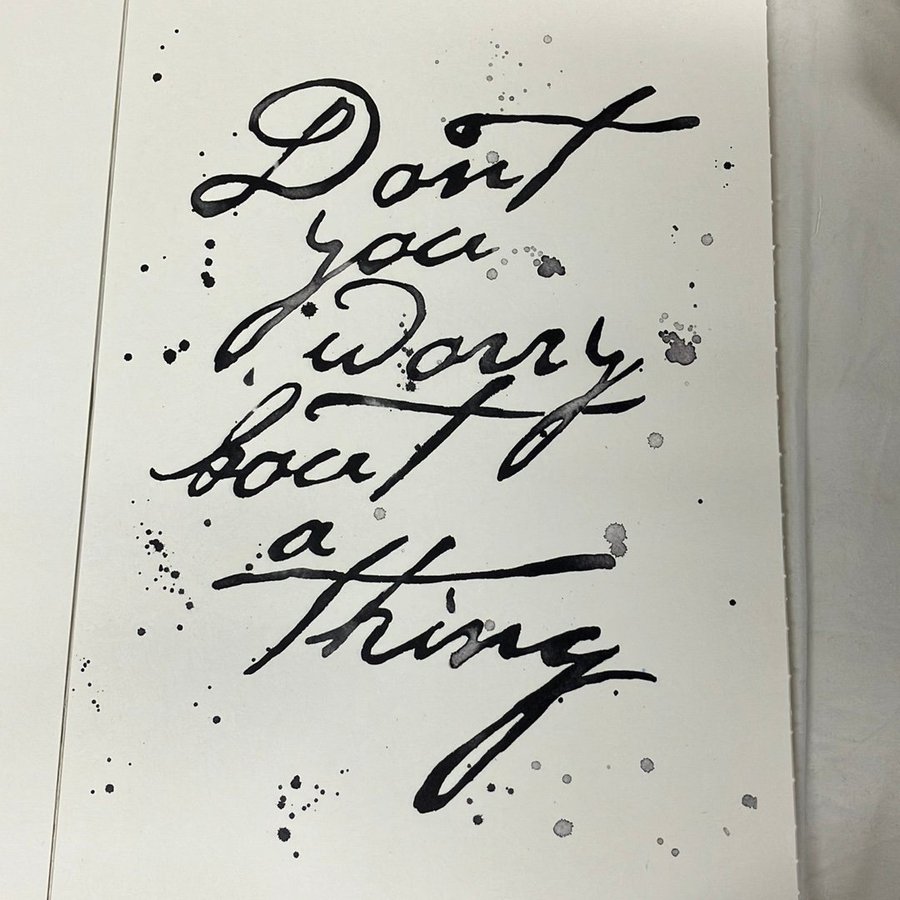 Don't
you
worry
'bout
a
thing